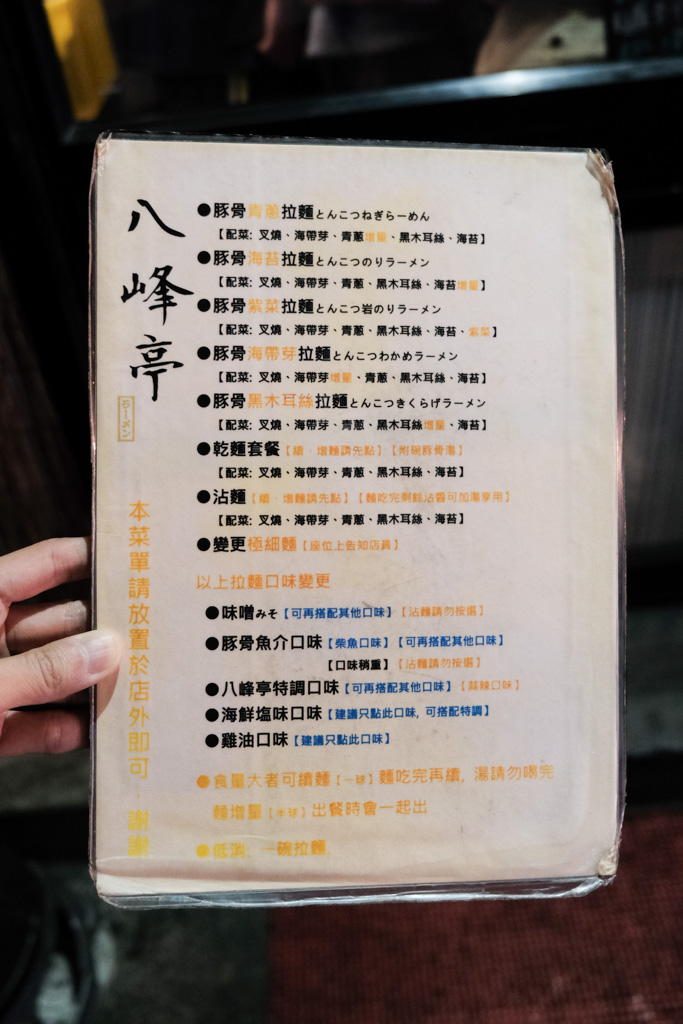 八峰亭
ラーメン
本菜單請放置於店外即可,謝謝
●豚骨青蔥拉麵とんこつねぎらーめん
【配菜: 叉燒、海帶芽、青蔥增量、黑木耳絲、海苔】
●豚骨海苔拉麵とんこつのりラーメン
【配菜: 叉燒、海帶芽、青蔥、黑木耳絲、海苔增量】
●豚骨紫菜拉麵とんこつ岩のりラーメン
【配菜: 叉燒、海帶芽、青蔥、黑木耳絲、海苔、紫菜】
●豚骨海帶芽拉麵とんこつわかめラーメン
【配菜: 叉燒、海帶芽增量、青蔥、黑木耳絲、海苔】
●豚骨黑木耳絲拉麵とんこつきくらげラーメン
【配菜: 叉燒、海帶芽、青蔥、黑木耳絲增量、海苔】
●乾麵套餐【續、增麵請先點】【附碗豚骨湯】
【配菜: 叉燒、海帶芽、青蔥、黑木耳絲、海苔】
●沾麵【續、增麵請先點】【麵吃完剩餘沾醬可加湯享用】
【配菜: 叉燒、海帶芽、青蔥、黑木耳絲、海苔】
●變更極細麵【座位上告知店員】
以上拉麵口味變更
●味噌みそ【可再搭配其他口味】【沾麵請勿按選】
●豚骨魚介口味【柴魚口味】【可再搭配其他口味】
【口味稍重】【沾麵請勿按選】
●八峰亭特調口味【可再搭配其他口味】【蒜辣口味】
●海鮮塩味口味【建議只點此口味, 可搭配特調】
●雞油口味【建議只點此口味】
●食量大者可續麵【一球】麵吃完再續, 湯請勿喝完
麵增量【半球】出餐時會一起出
●低消: 一碗拉麵.